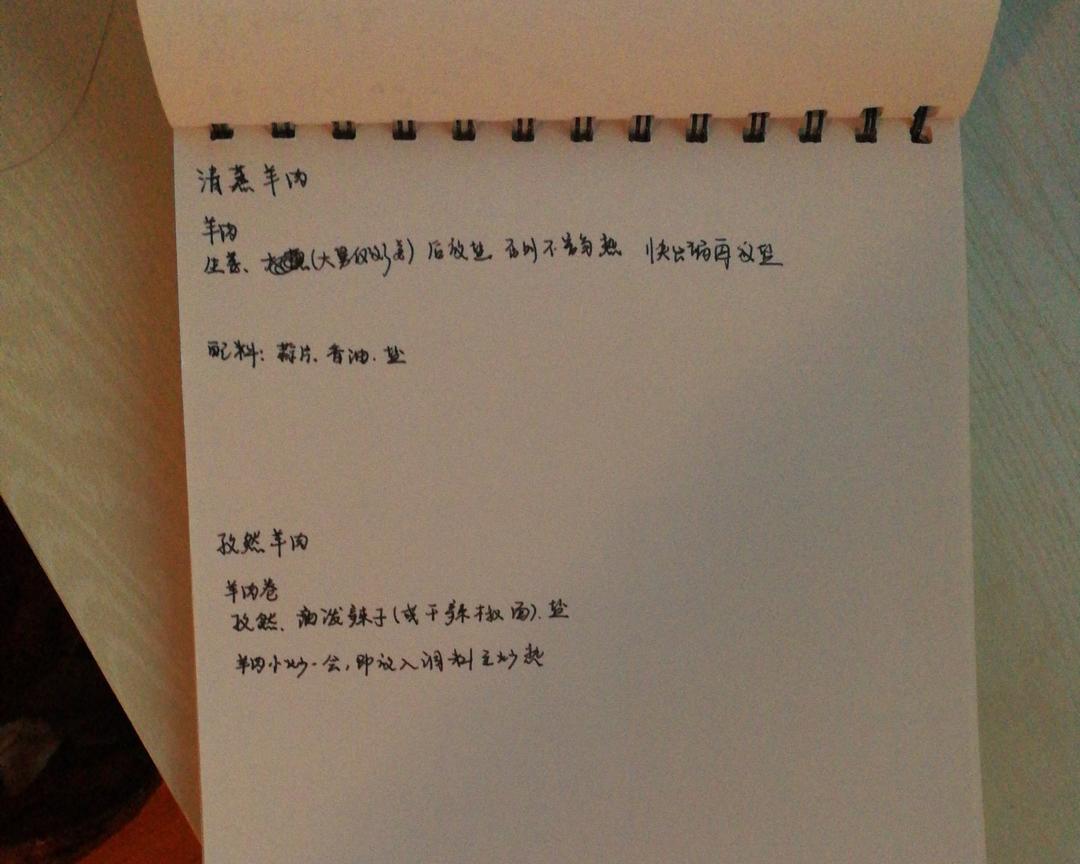 清蒸羊肉
羊肉
生姜、(大量 姜) 后放盐 否则不易熟 快出锅再放盐
配料: 蒜片、香油、盐
孜然羊肉
羊肉卷
孜然、油泼辣子(或干辣椒面)、盐
羊肉小炒一会,即放入调料至炒熟